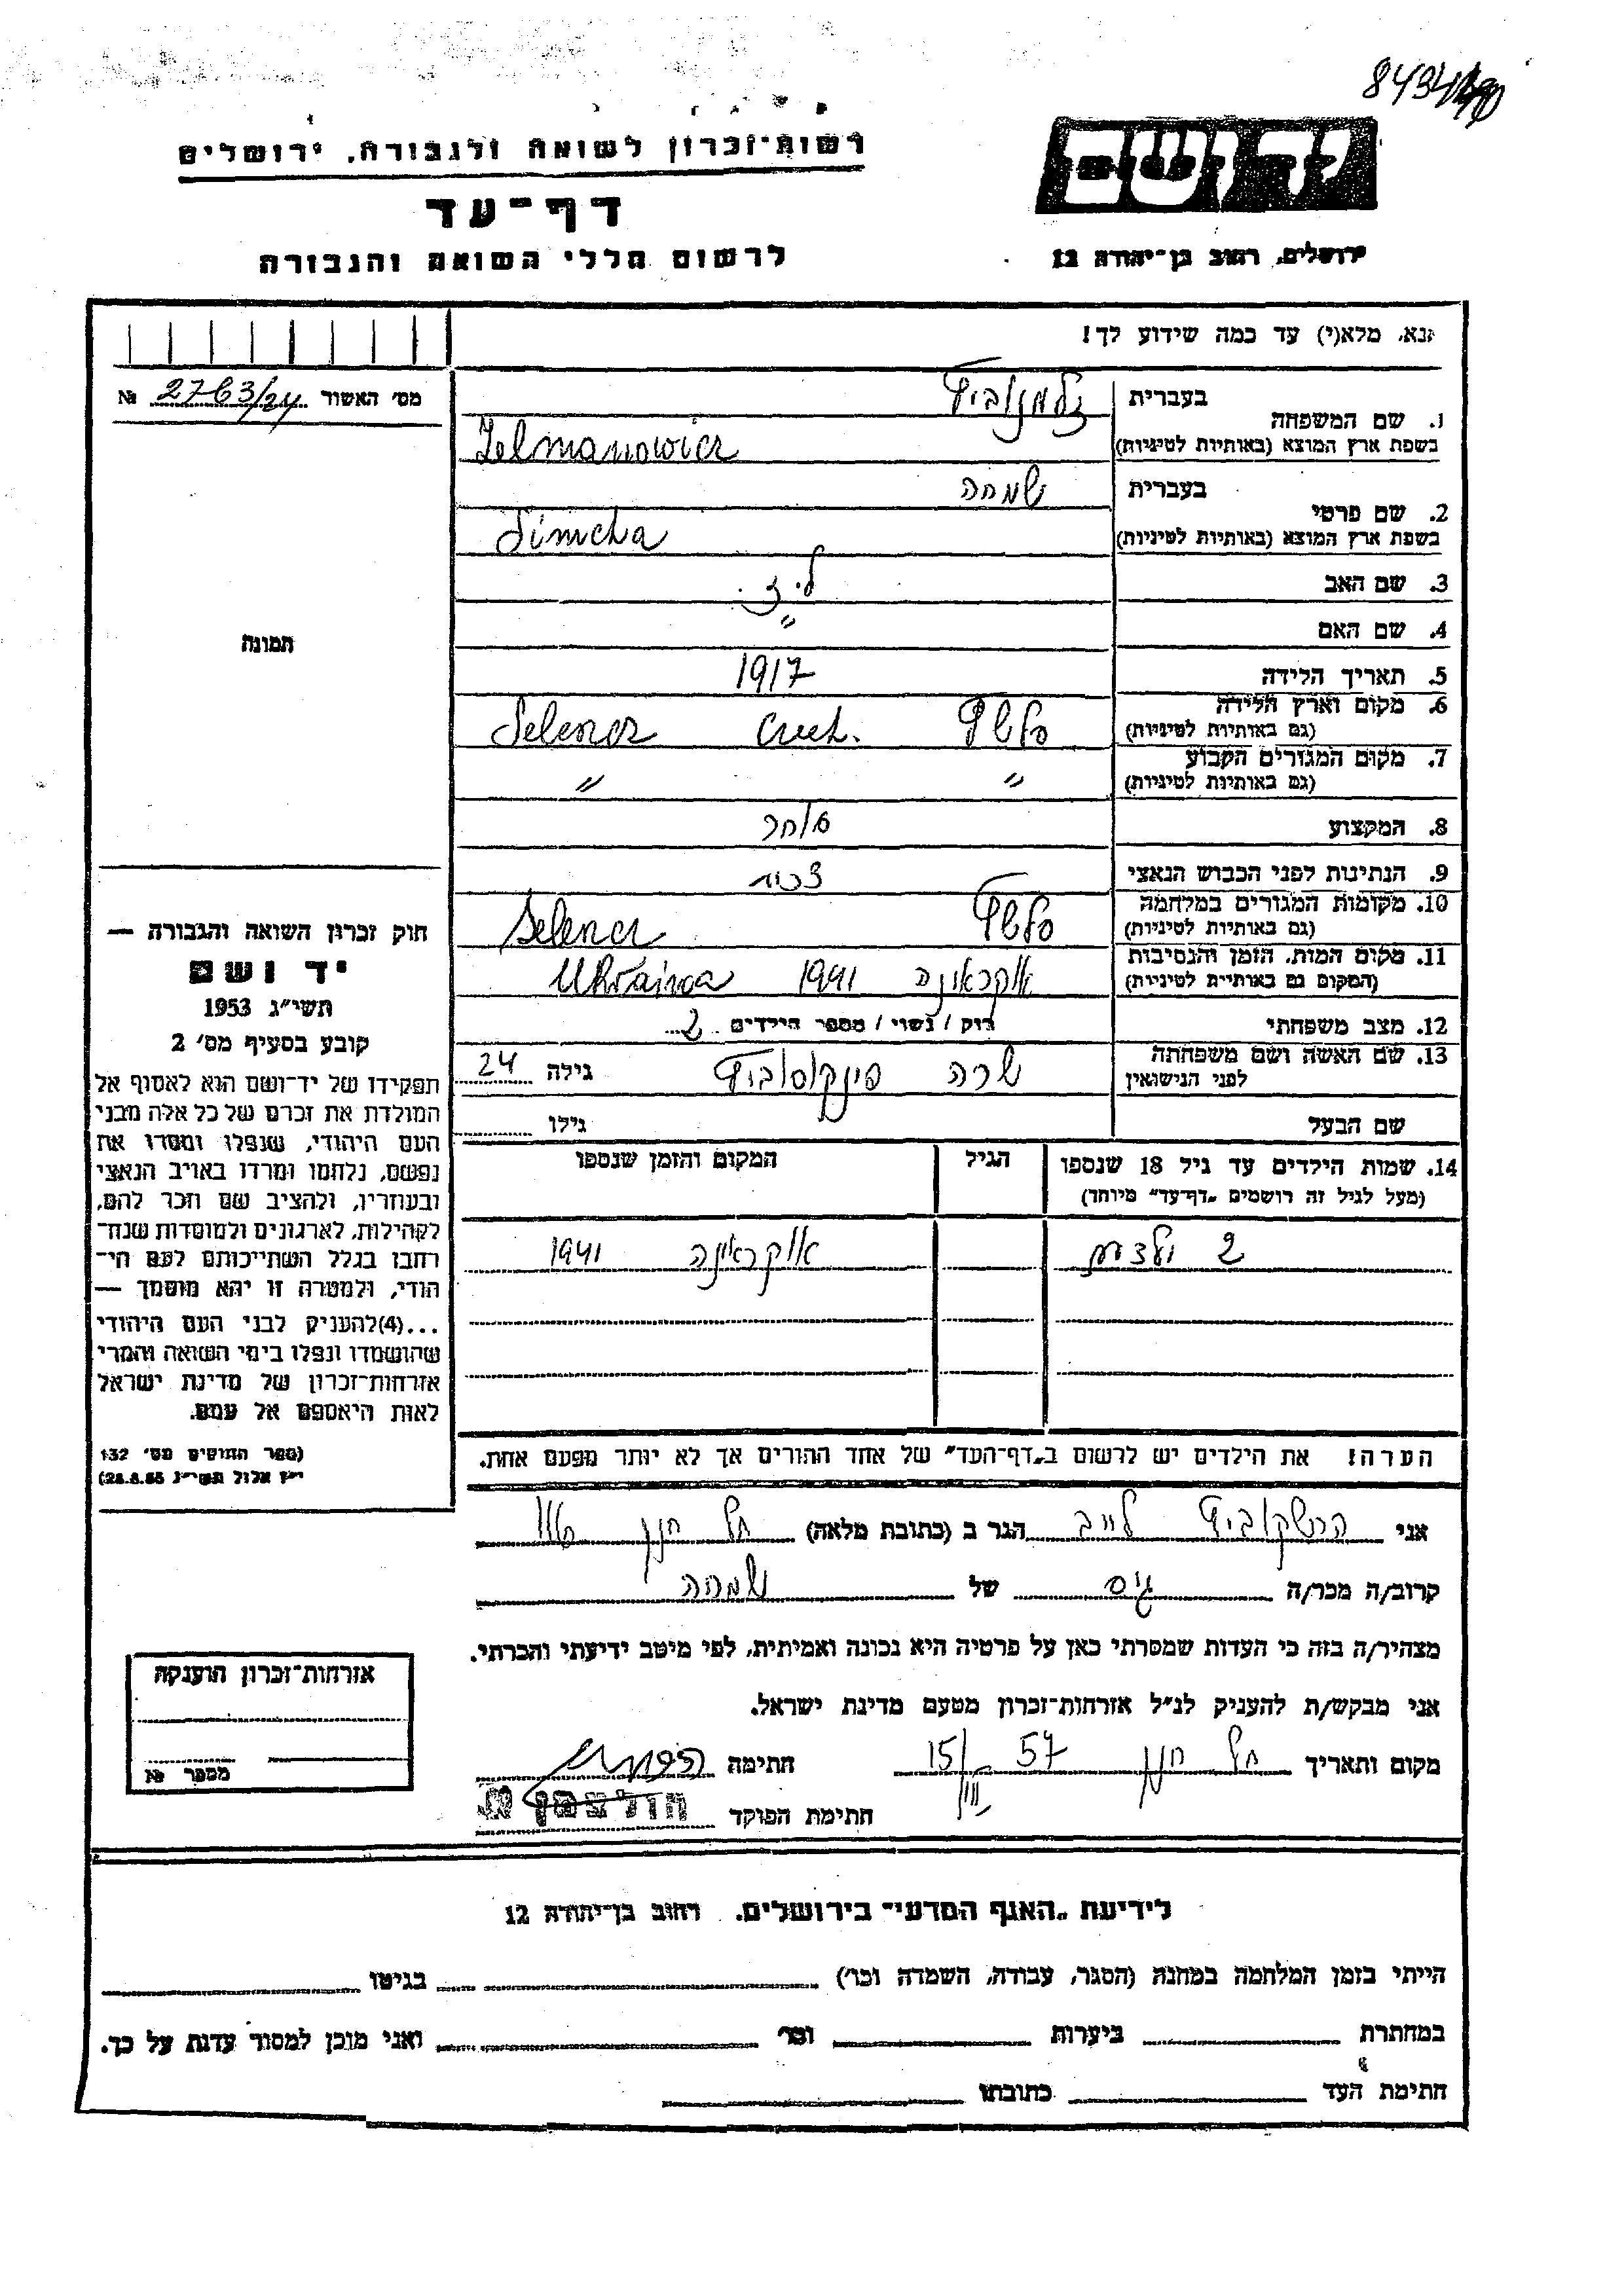 רשות־זכרון לשואה ולגבורה, ירושלים
דף־עד
לרשום חללי השואה והגבורה
יד ושם
ירושלים, רחוב בן־יהודה 12
נא, מלא(י) עד כמה שידוע לך!
מס׳ האשור 2763/24 №
1. שם המשפחה
בעברית זלמנוביץ
בשפת ארץ המוצא (באותיות לטיניות) Zelmanowicz
2. שם פרטי
בעברית שמחה
בשפת ארץ המוצא (באותיות לטיניות) Simcha
3. שם האב
4. שם האם "
5. תאריך הלידה 1917
6. מקום וארץ הלידה
(גם באותיות לטיניות) Selencz
7. מקום המגורים הקבוע
(גם באותיות לטיניות) " "
8. המקצוע סוחר
9. הנתינות לפני הכבוש הנאצי
10. מקומות המגורים במלחמה
(גם באותיות לטיניות) Selencz
11. מקום המות, הזמן והנסיבות
(המקום גם באותיות לטיניות) אוקראינה 1941 Ukraina
12. מצב משפחתי רוק / נשוי / מספר הילדים 2
13. שם האשה ושם משפחתה
לפני הנישואין שרה פינקסוביץ גילה 24
שם הבעל גילו
14. שמות הילדים עד גיל 18 שנספו הגיל המקום והזמן שנספו
(מעל לגיל זה רושמים „דף־עד״ מיוחד)
2 ילדים אוקראינה 1941
הערה! את הילדים יש לרשום ב„דף־העד״ של אחד ההורים אך לא יותר מפעם אחת.
תמונה
חוק זכרון השואה והגבורה —
יד ושם
תשי״ג 1953
קובע בסעיף מס׳ 2
תפקידו של יד־ושם הוא לאסוף אל
המולדת את זכרם של כל אלה מבני
העם היהודי, שנפלו ומסרו את
נפשם, נלחמו ומרדו באויב הנאצי
ובעוזריו, ולהציב שם וזכר להם,
לקהילות, לארגונים ולמוסדות שנח־
רבו בגלל השתייכותם לעם הי־
הודי, ולמטרה זו יהא מוסמך —
...(4)להעניק לבני העם היהודי
שהושמדו ונפלו בימי השואה והמרי
אזרחות־זכרון של מדינת ישראל
לאות היאספם אל עמם.
(ספר החוקים מס׳ 132
אני הרשקוביץ לייב הגר ב (כתובת מלאה) תל חנן
קרוב/ה מכר/ה גיס של שמחה
מצהיר/ה בזה כי העדות שמסרתי כאן על פרטיה היא נכונה ואמיתית, לפי מיטב ידיעתי והכרתי.
אני מבקש/ת להעניק לנ״ל אזרחות־זכרון מטעם מדינת ישראל.
מקום ותאריך תל חנן 57 15/VII חתימה
חתימת הפוקד הולצמן
אזרחות־זכרון הוענקה
מספר №
לידיעת „האגף המדעי״ בירושלים. רחוב בן־יהודה 12
הייתי בזמן המלחמה במחנה (הסגר, עבודה, השמדה וכו׳) בגיטו
במחתרת ביערות וכו׳ ואני מוכן למסור עדות על כך.
חתימת העד כתובתו